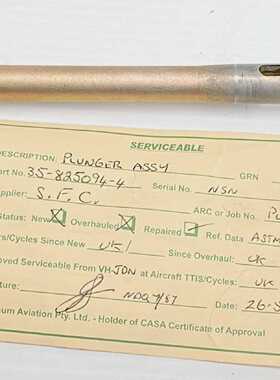 SERVICEABLE
DESCRIPTION: PLUNGER ASSY GRN
Part No. 35-825094-4 Serial No. NSN
Supplier: S.F.C. ARC or Job No.
Status: New Overhauled Repaired Ref. Data ASTM
TTIS/Cycles Since New UK/ Since Overhaul: UK
Removed Serviceable From VH-JDN at Aircraft TTIS/Cycles: UK
Signature: Date: 26-
Aviation Pty. Ltd. - Holder of CASA Certificate of Approval